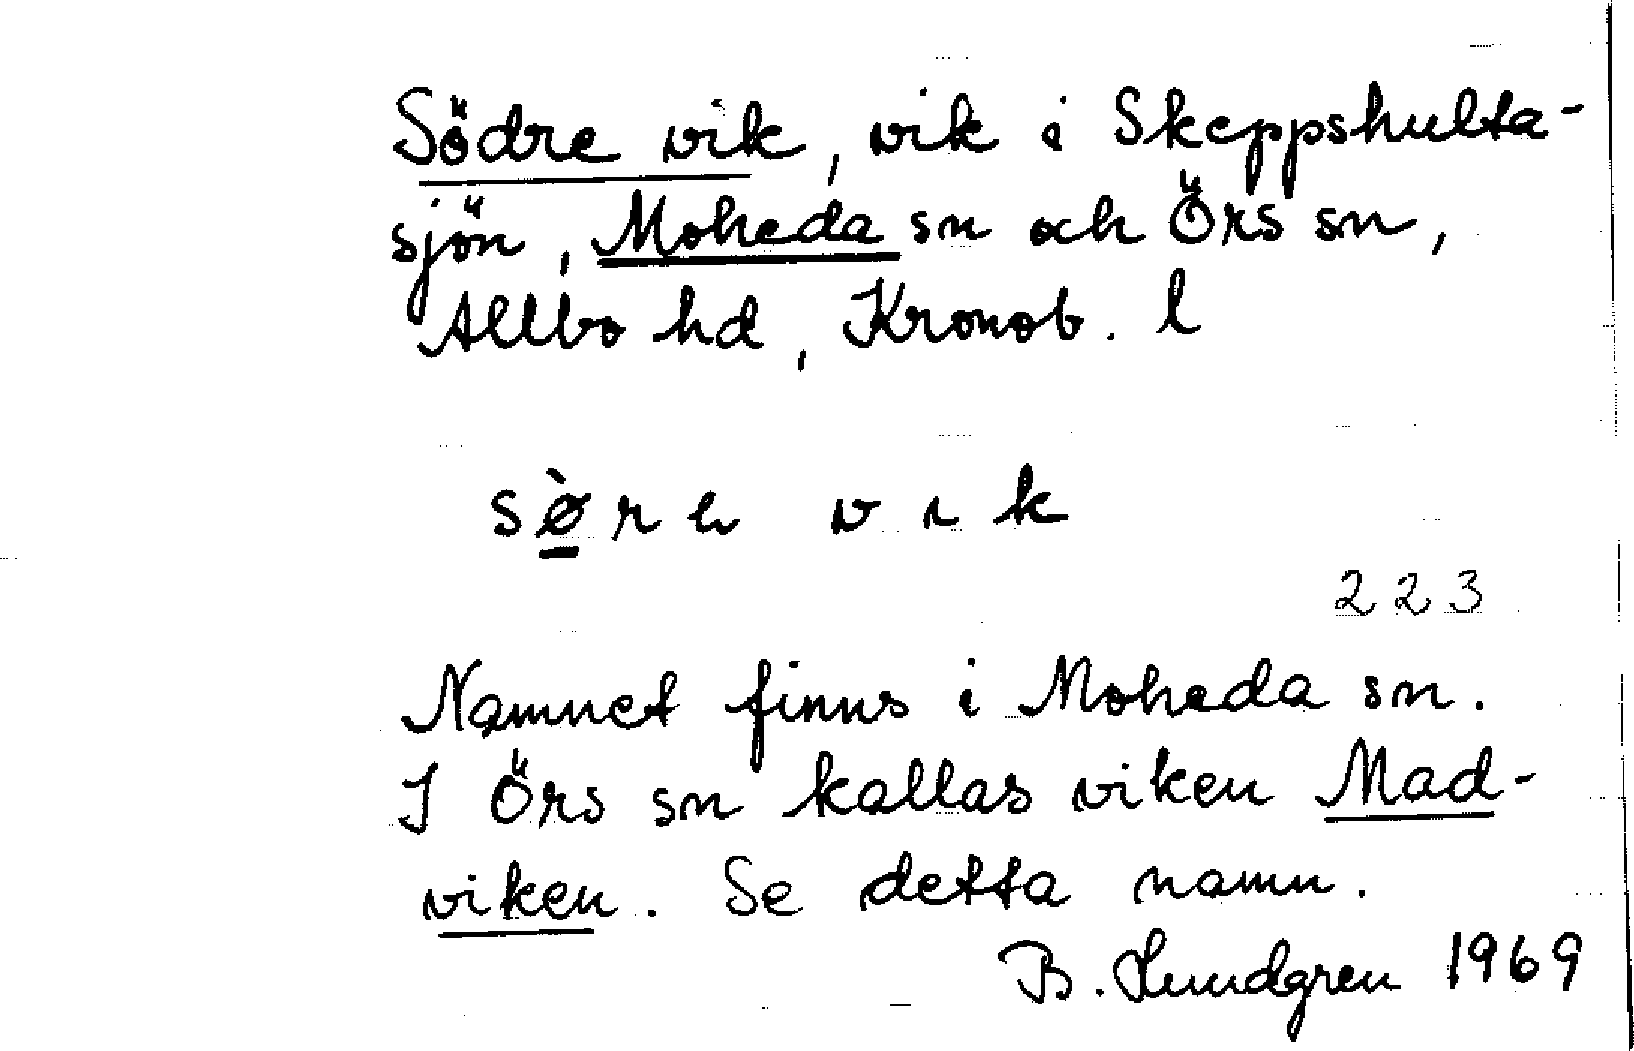 Södre vik, vik i Skeppshulta-
sjön, Moheda sn och Örs sn,
Allbo hd, Kronob. l
sø̀re vık
223
Namnet finns i Moheda sn.
I Örs sn kallas viken Mad-
viken. Se detta namn.
B. Lundgren 1969